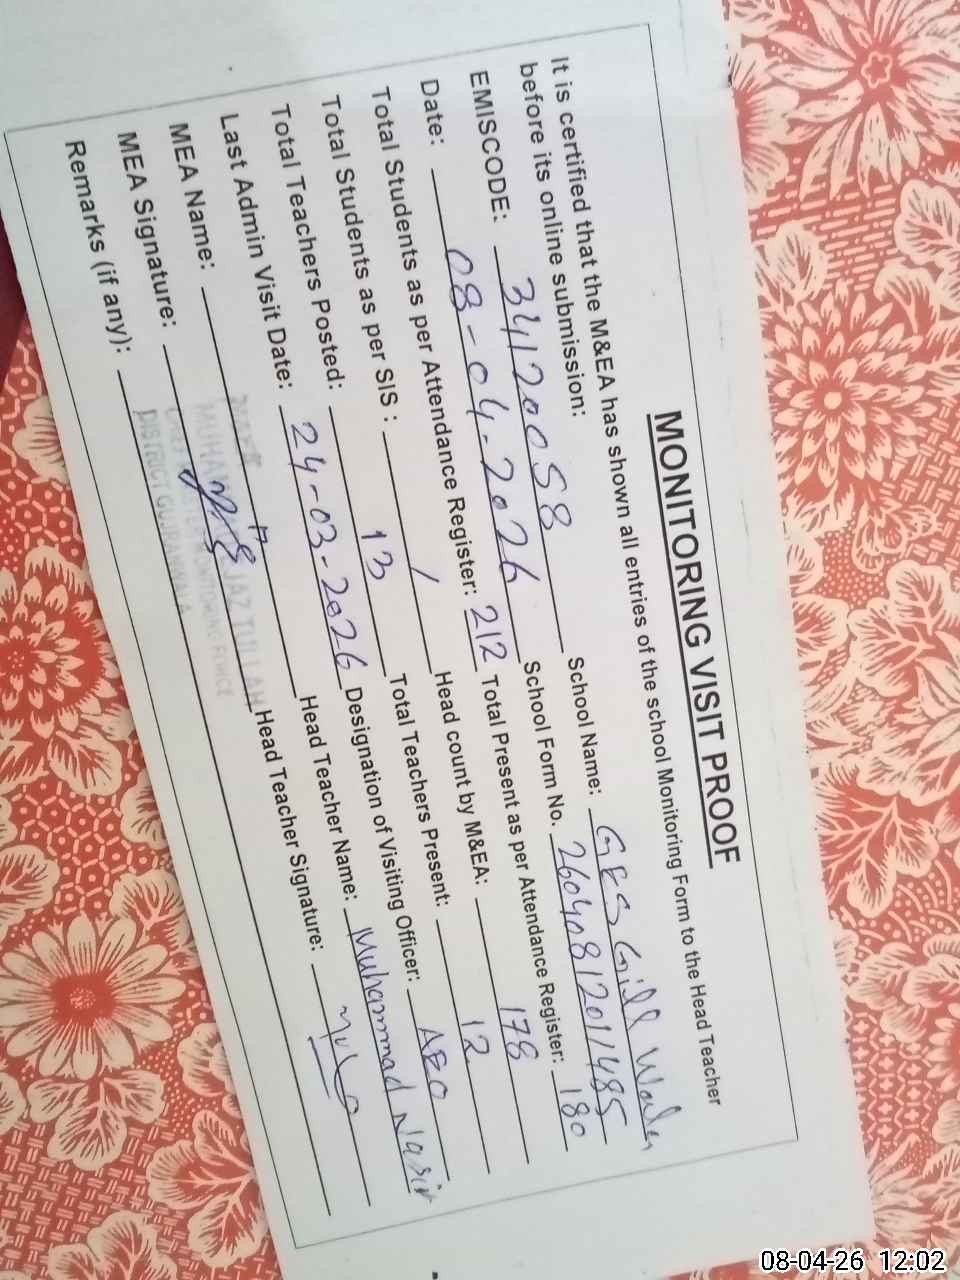 MONITORING VISIT PROOF
It is certified that the M&EA has shown all entries of the school Monitoring Form to the Head Teacher
before its online submission:
EMISCODE: 34120058 School Name: GES Gill Wala
Date: 08-04-2026 School Form No. 2604081201485
Total Students as per Attendance Register: 212 Total Present as per Attendance Register: 180
Total Students as per SIS : / Head count by M&EA: 178
Total Teachers Posted: 13 Total Teachers Present: 12
Last Admin Visit Date: 24-03-2026 Designation of Visiting Officer: AEO
MEA Name: Head Teacher Name: Muhammad Nasir
MEA Signature: Head Teacher Signature:
Remarks (if any):
DISTRICT GUJRANWALA
08-04-26 12:02